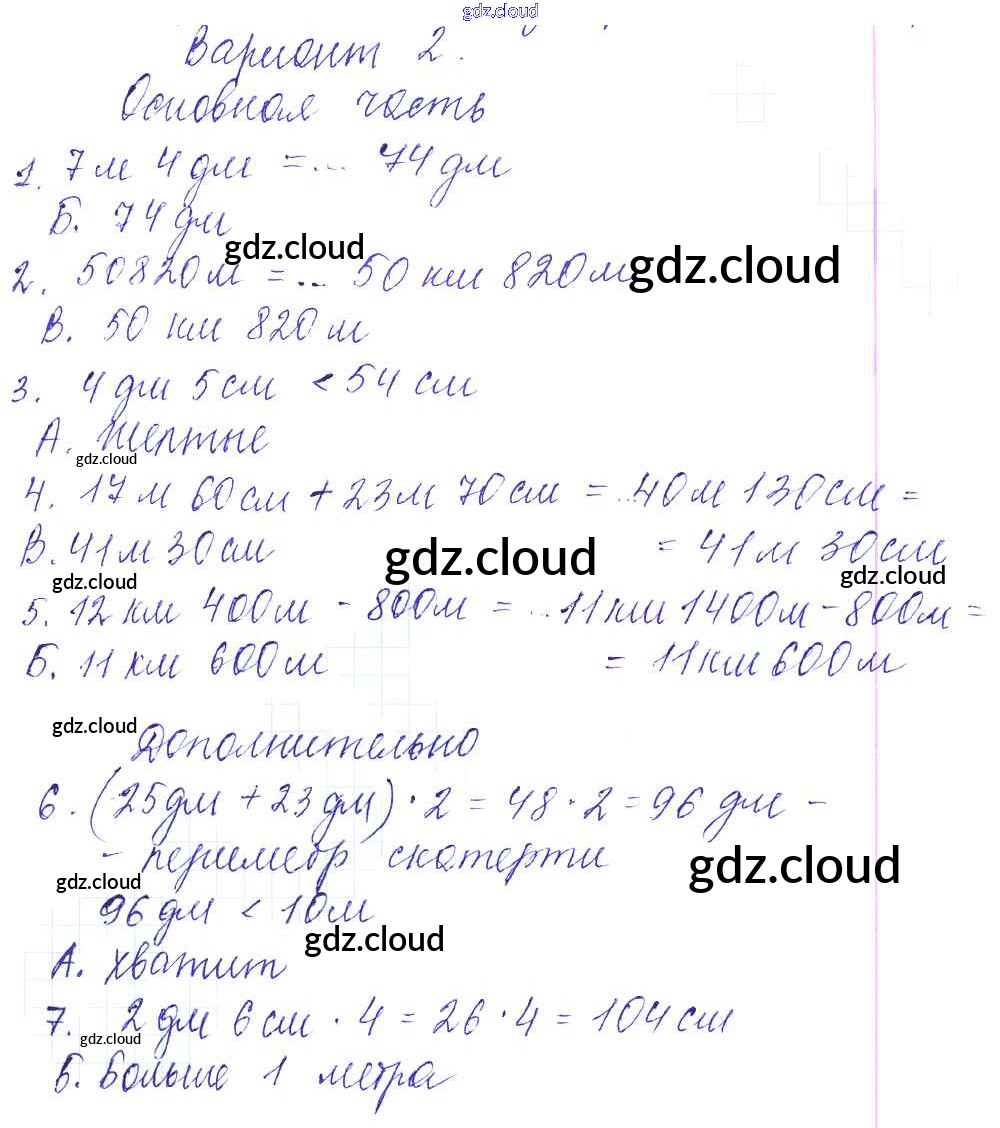 gdz.cloud
Вариант 2.
Основная часть
1. 7 м 4 дм = ... 74 дм
Б. 74 дм
gdz.cloud
gdz.cloud
2. 50820 м = ... 50 км 820 м
В. 50 км 820 м
3. 4 дм 5 см < 54 см
А. Желтые
gdz.cloud
4. 17 м 60 см + 23 м 70 см = ... 40 м 130 см =
В. 41 м 30 см = 41 м 30 см
gdz.cloud
gdz.cloud
gdz.cloud
5. 12 км 400 м - 800 м = ... 11 км 1400 м - 800 м =
Б. 11 км 600 м = 11 км 600 м
gdz.cloud
Дополнительно
6. (25 дм + 23 дм) · 2 = 48 · 2 = 96 дм -
- периметр скатерти
gdz.cloud
gdz.cloud
96 дм < 10 м
gdz.cloud
А. хватит
7. 2 дм 6 см · 4 = 26 · 4 = 104 см
gdz.cloud
Б. Больше 1 метра